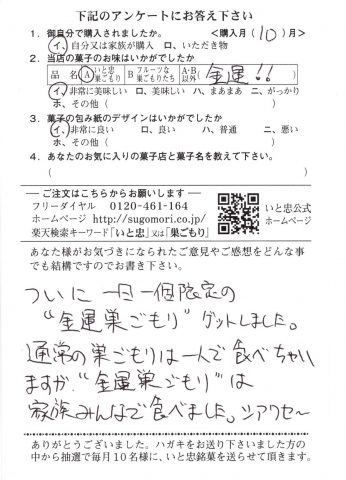 下記のアンケートにお答え下さい
1．御自分で購入されましたか。 ＜購入月（10）月＞
イ、自分又は家族が購入 ロ、いただき物
2．当店の菓子のお味はいかがでしたか
品 名 A いと忠巣ごもり B フルーツな巣ごもりたち A・B以外（金運!!）
イ、非常に美味しい ロ、美味しい ハ、まあまあ ニ、がっかり
ホ、その他（ ）
3．菓子の包み紙のデザインはいかがですか
イ、非常に良い ロ、良い ハ、普通 ニ、悪い
ホ、その他（ ）
4．あなたのお気に入りの菓子店と菓子名を教えて下さい。
（ ）
ご注文はこちらからお願いします
フリーダイヤル 0120-461-164
ホームページ http://sugomori.co.jp/
楽天検索キーワード「いと忠」又は「巣ごもり」
いと忠公式
ホームページ
あなた様がお気づきになられたご意見やご感想をどんな事
でも結構ですのでお書き下さい。
ついに 一日一個限定の
“金運巣ごもり” ゲットしました。
通常の巣ごもりは一人で食べちゃい
ますが、“金運巣ごもり”は
家族みんなで食べました。シアワセ〜
ありがとうございました。ハガキをお送り下さいました方の
中から抽選で毎月10名様に、いと忠銘菓を送らせて頂きます。